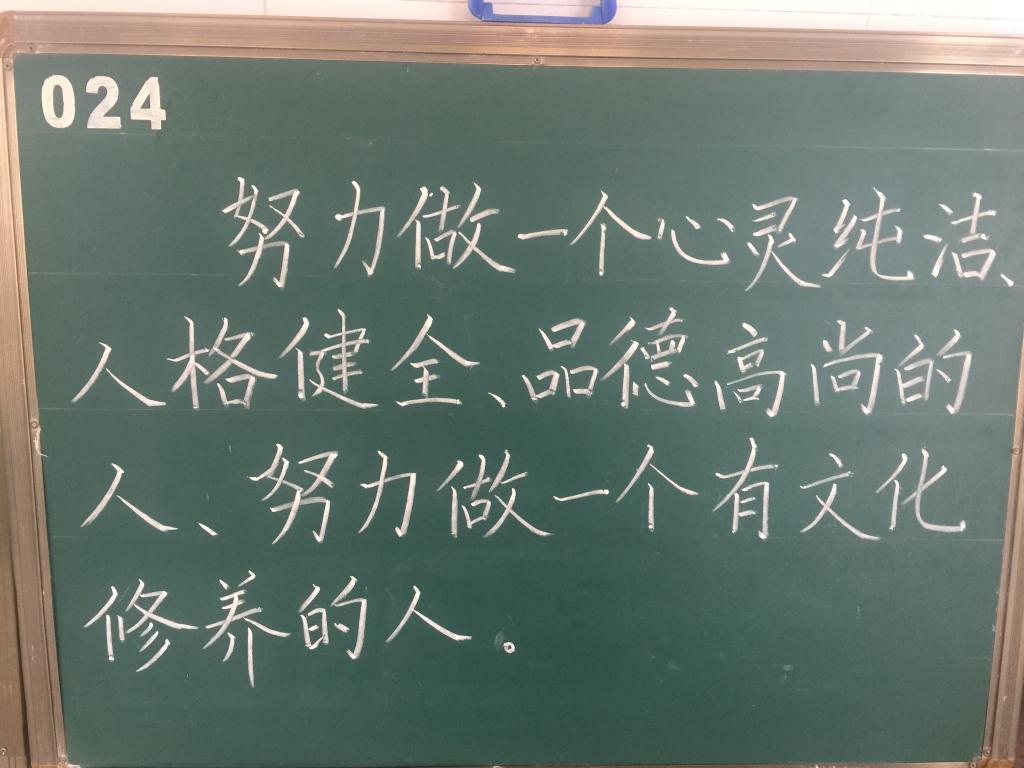 024
努力做一个心灵纯洁、
人格健全、品德高尚的
人、努力做一个有文化
修养的人。